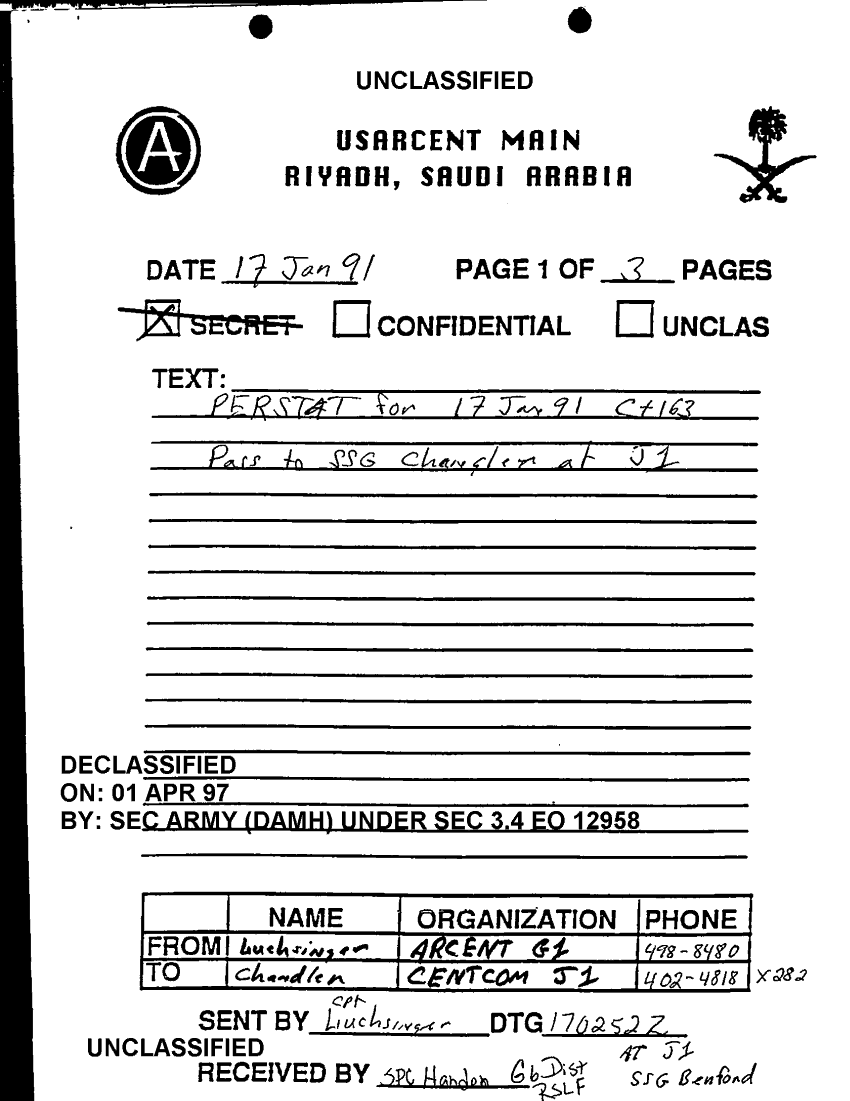 UNCLASSIFIED
A
USARCENT MAIN
RIYADH, SAUDI ARABIA
DATE 17 Jan 91 PAGE 1 OF 3 PAGES
X SECRET CONFIDENTIAL UNCLAS
TEXT:
PERSTAT for 17 Jan 91 C+163
Pass to SSG at J1
DECLASSIFIED
ON: 01 APR 97
BY: SEC ARMY (DAMH) UNDER SEC 3.4 EO 12958
NAME ORGANIZATION PHONE
FROM Luchsinger ARCENT G1 498-8480
TO Chandler CENTCOM J1 402-4818 X282
SENT BY CPT Luchsinger DTG 170252Z
UNCLASSIFIED
AT J1
RECEIVED BY SPC G6 Dist SSG Benford
RSLF